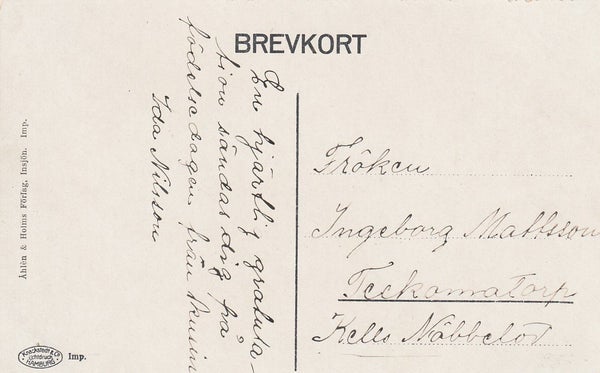 BREVKORT
En hjärtlig gratula-
tion sändas dig på
födelsedagen från
Ida Nilsson
Fröken
Ingeborg Mattsson
Teckomatorp
Kells Näbbelöf
Åhlén & Holms Förlag, Insjön. Imp.
Knackstedt & Co
Lichtdruck
HAMBURG
Imp.